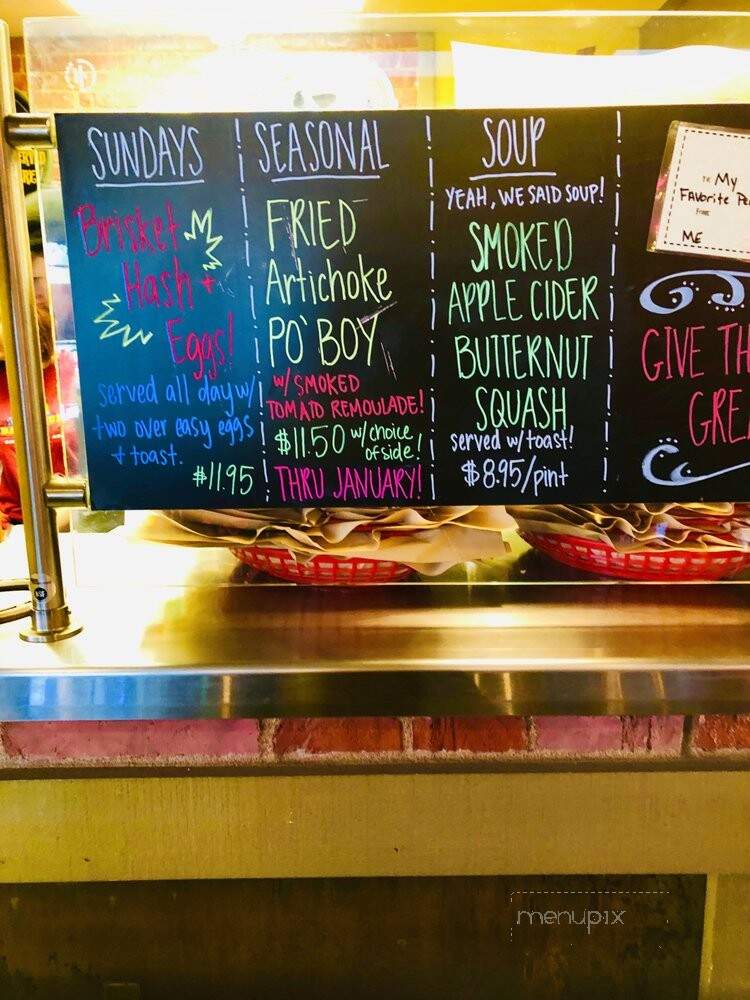 SUNDAYS
Brisket
Hash +
Eggs!
served all day w/
two over easy eggs
+ toast.
$11.95
SEASONAL
FRIED
Artichoke
PO'BOY
w/ SMOKED
TOMATO REMOULADE!
$11.50 w/choice
of side!
THRU JANUARY!
SOUP
YEAH, WE SAID SOUP!
SMOKED
APPLE CIDER
BUTTERNUT
SQUASH
served w/toast!
$8.95/pint
TO: My
Favorite Pe
FROM:
ME
GIVE TH
GREA
menupix